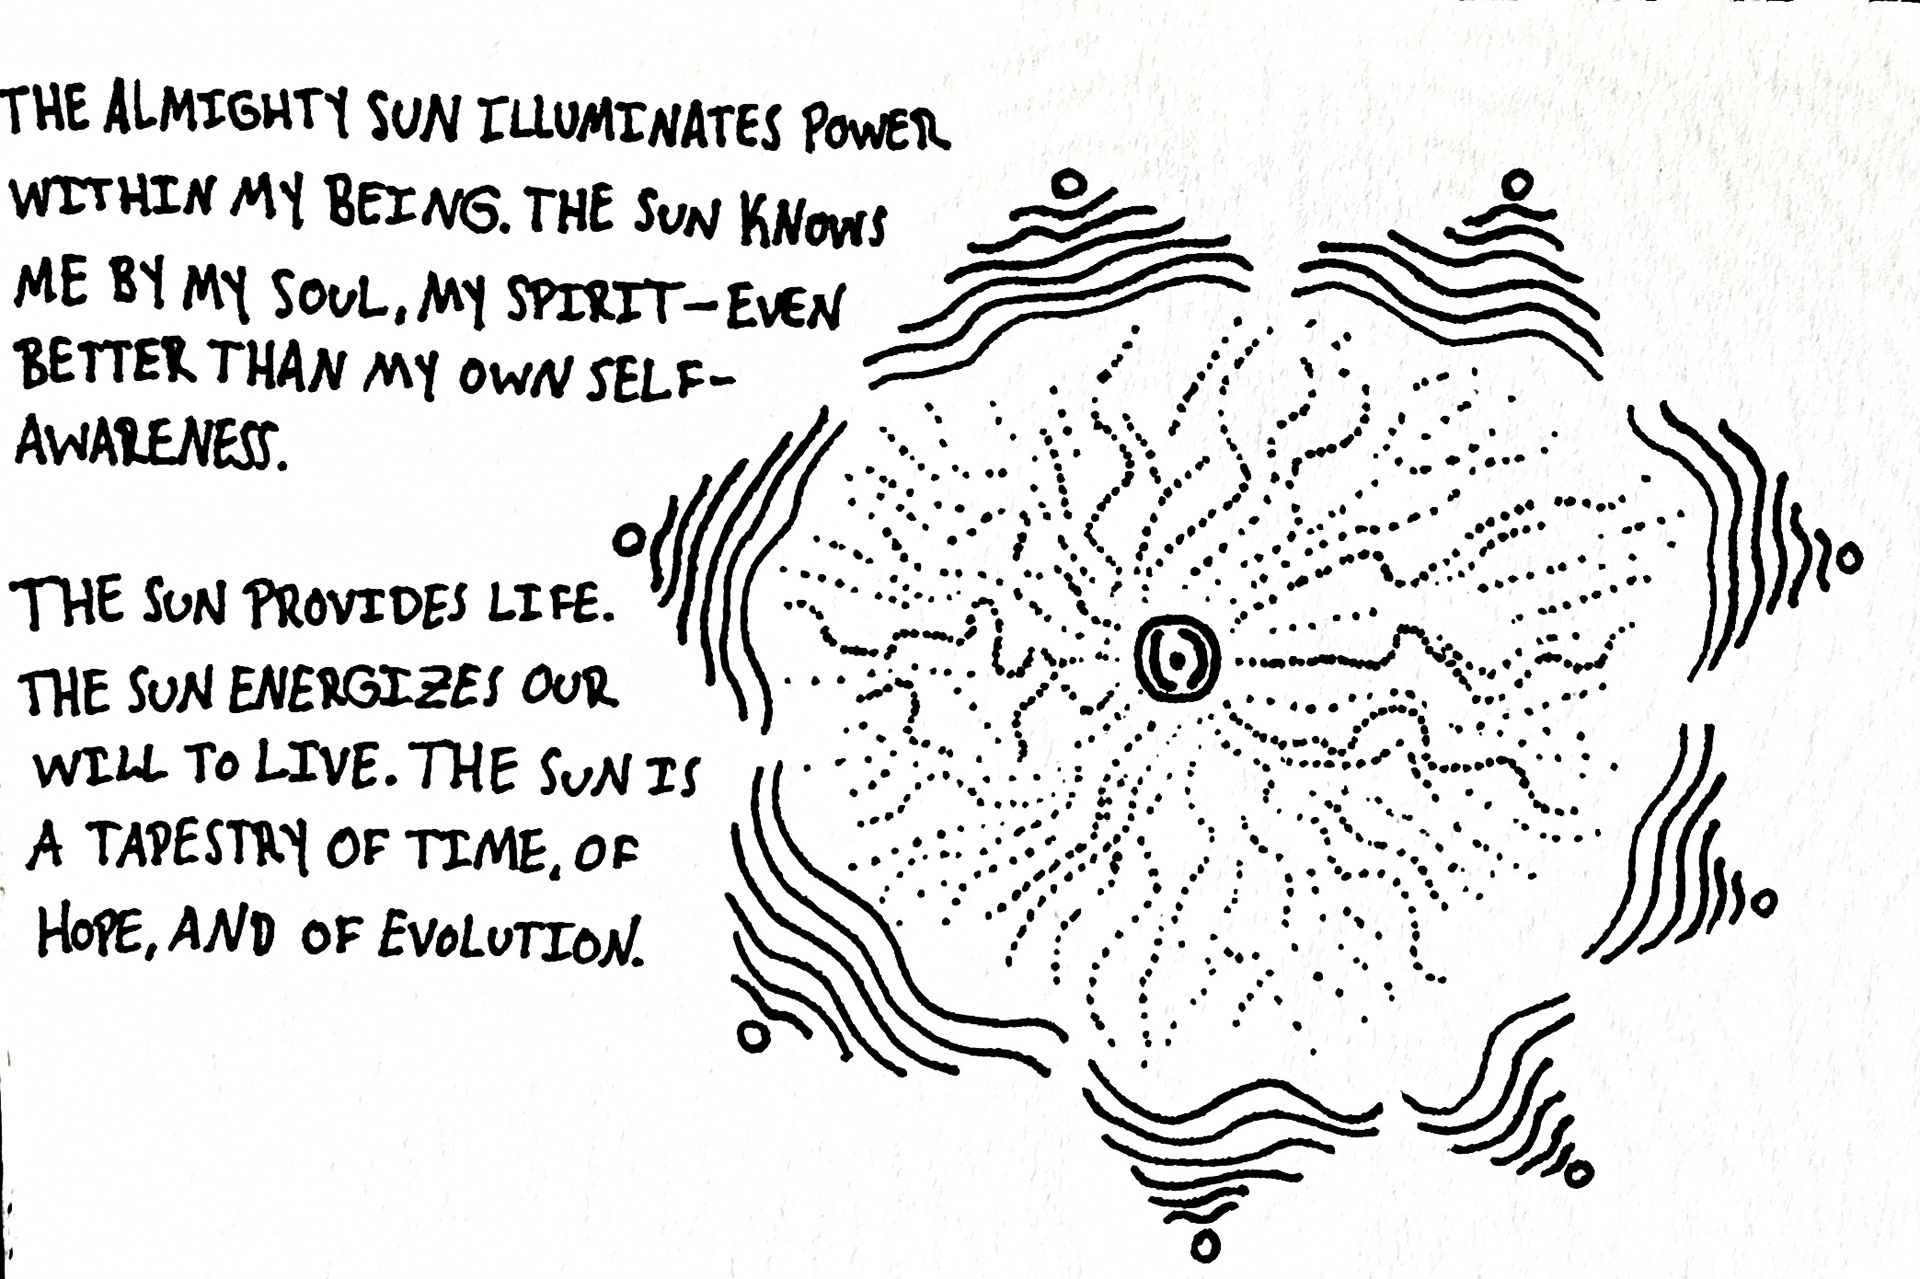 THE ALMIGHTY SUN ILLUMINATES POWER
WITHIN MY BEING. THE SUN KNOWS
ME BY MY SOUL, MY SPIRIT—EVEN
BETTER THAN MY OWN SELF-
AWARENESS.
THE SUN PROVIDES LIFE.
THE SUN ENERGIZES OUR
WILL TO LIVE. THE SUN IS
A TAPESTRY OF TIME, OF
HOPE, AND OF EVOLUTION.